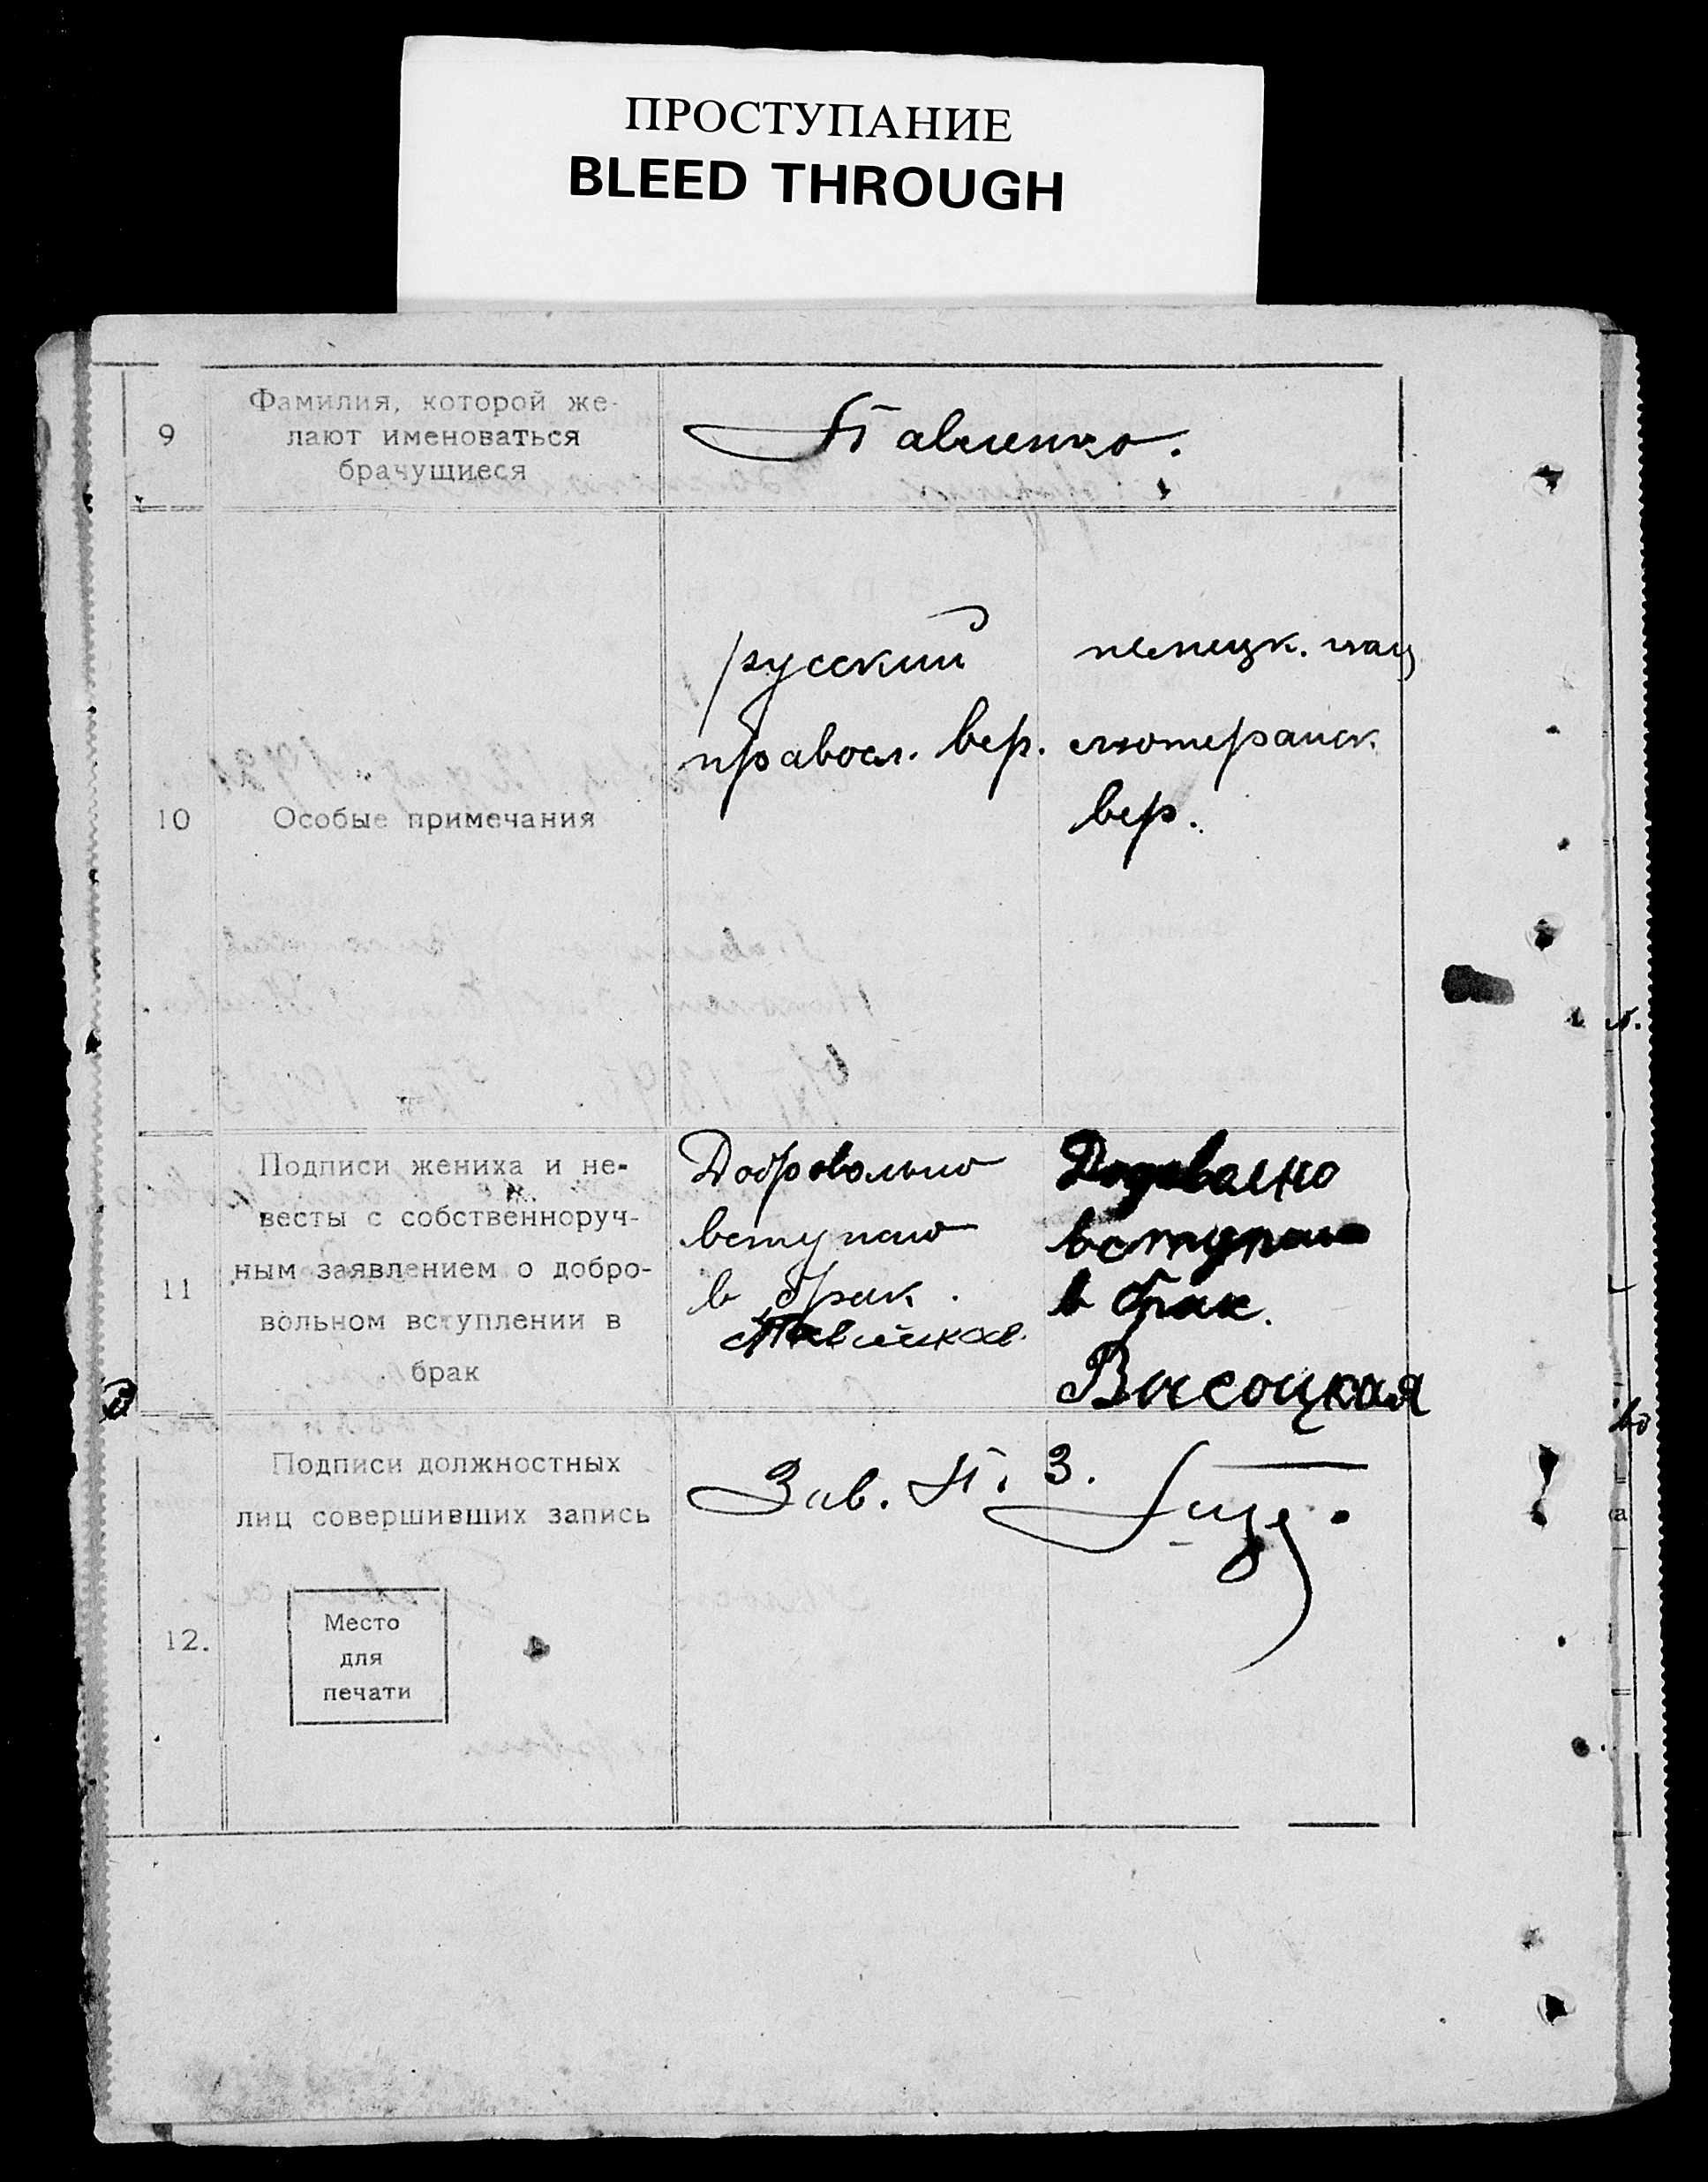 ПРОСТУПАНИЕ
BLEED THROUGH
9
Фамилия, которой же-
лают именоваться
брачущиеся
Павленко.
10
Особые примечания
русский
правосл. вер.
немецк. нац
лютеранск.
вер.
11
Подписи жениха и не-
весты с собственноруч-
ным заявлением о добро-
вольном вступлении в
брак
Добровольно
вступаю
в брак.
вступаю
в брак.
Высоцкая
12.
Подписи должностных
лиц совершивших запись
Место
для
печати
Зав. П. З.